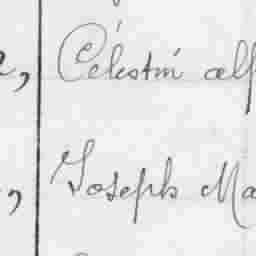 Célestin alf
Joseph Ma